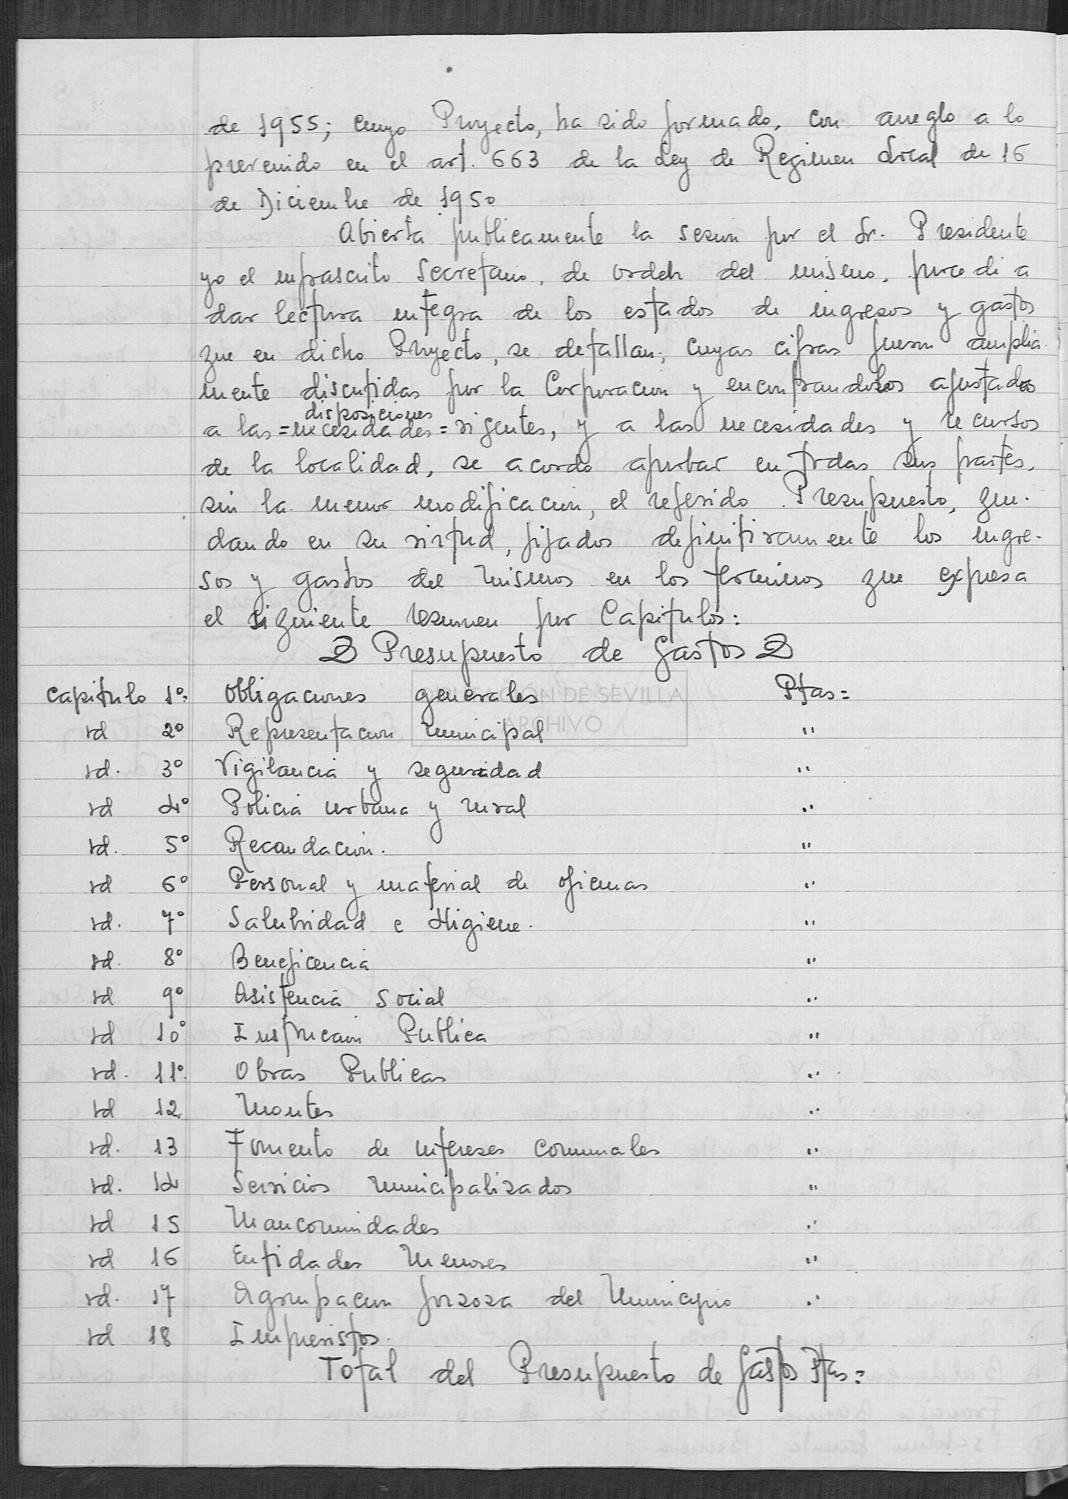 de 1955; cuyo Proyecto, ha sido formado, con arreglo a lo
prevenido en el art. 663 de la Ley de Regimen Local de 16
de Diciembre de 1950
Abierta publicamente la sesion por el Sr. Presidente
yo el infrascrito Secretario, de orden del mismo, procedi a
dar lectura integra de los estados de ingresos y gastos
que en dicho Proyecto, se detallan; cuyas cifras fueron amplia-
mente discutidas por la Corporacion y encontrandolos ajustados
disposiciones
a las =necesidades= vigentes, y a las necesidades y recursos
de la localidad, se acordo aprobar en todas sus partes,
sin la menor modificacion, el referido Presupuesto, que-
dando en su virtud, fijados definitivamente los ingre-
sos y gastos del mismos en los terminos que expresa
el siguiente resumen por Capitulos:
Presupuesto de Gastos
Capitulo 1º: Obligaciones generales Ptas=
id 2º Representacion municipal "
id. 3º Vigilancia y seguridad "
id 4º Policia urbana y rural "
id. 5º Recaudacion. "
id 6º Personal y material de oficinas "
id. 7º Salubridad e Higiene. "
id. 8º Beneficencia "
id 9º Asistencia Social "
id 10º Instrucion Publica "
id. 11º. Obras Publicas "
id 12 Montes "
id. 13 Fomento de intereses comunales "
id. 14 Servicios municipalizados "
id 15 Mancomunidades "
id 16 Entidades Menores "
id. 17 Agrupacion forzosa del Municipio "
id 18 Imprevistos.
Total del Presupuesto de Gastos Ptas=
DIPUTACIÓN DE SEVILLA
ARCHIVO